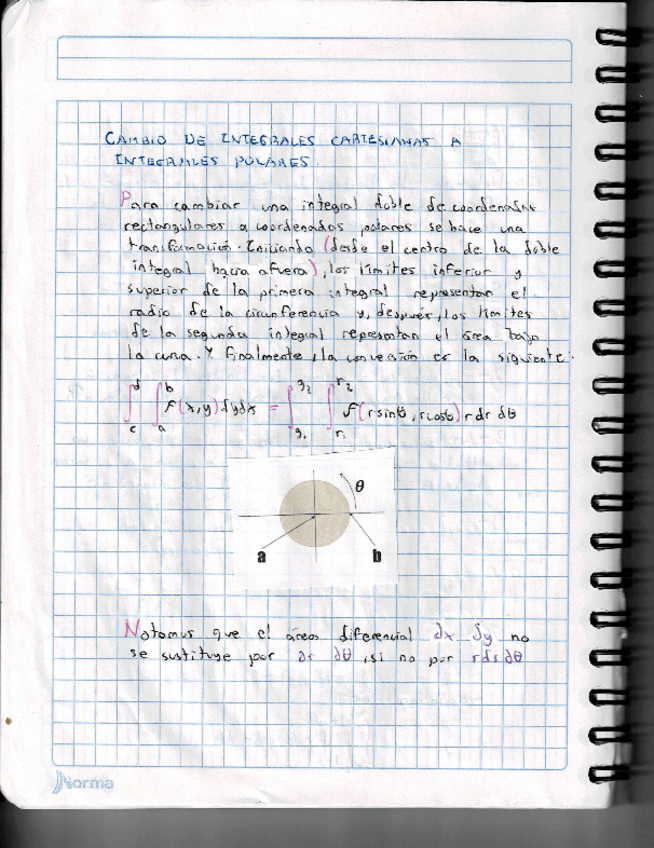 CAMBIO DE INTEGRALES CARTESIANAS A
INTEGRALES POLARES.
Para cambiar una integral doble de coordenadas
rectangulares a coordenadas polares se hace una
transformación. Iniciando (desde el centro de la doble
integral hacia afuera), los límites inferior y
superior de la primera integral representan el
radio de la circunferencia y, después, los límites
de la segunda integral representan el área bajo
la curva. Y finalmente, la conversión es la siguiente.
∫_c^d ∫_a^b f(x,y) dydx = ∫_{g_1}^{g_2} ∫_{r_1}^{r_2} f(rsinθ, rcosθ) r dr dθ
θ
a b
Notamos que el área diferencial dx dy no
se sustituye por dr dθ, si no por rdr dθ
Norma